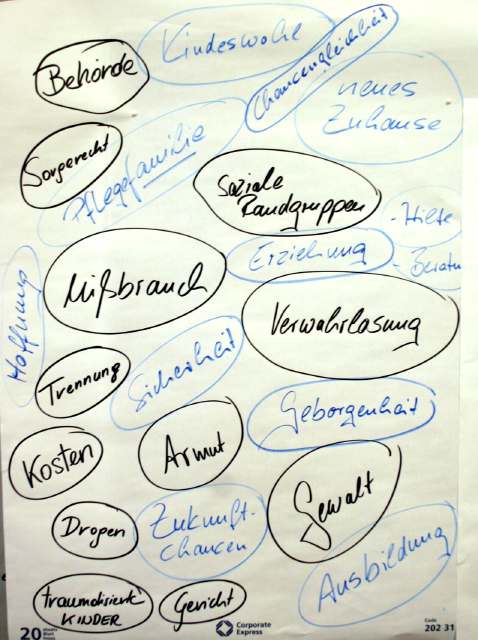 Kindeswohl
Chancengleichheit
Behörde
neues
Zuhause
Sorgerecht
Pflegefamilie
Soziale
Randgruppen
- Hilfe
Erziehung
- Beratu
Mißbrauch
Hoffnung
Verwahrlosung
Trennung
Sicherheit
Geborgenheit
Kosten
Armut
Gewalt
Drogen
Zukunft-
chancen
Ausbildung
traumatisierte
KINDER
Gericht
20
Corporate
Express
Code
202 31